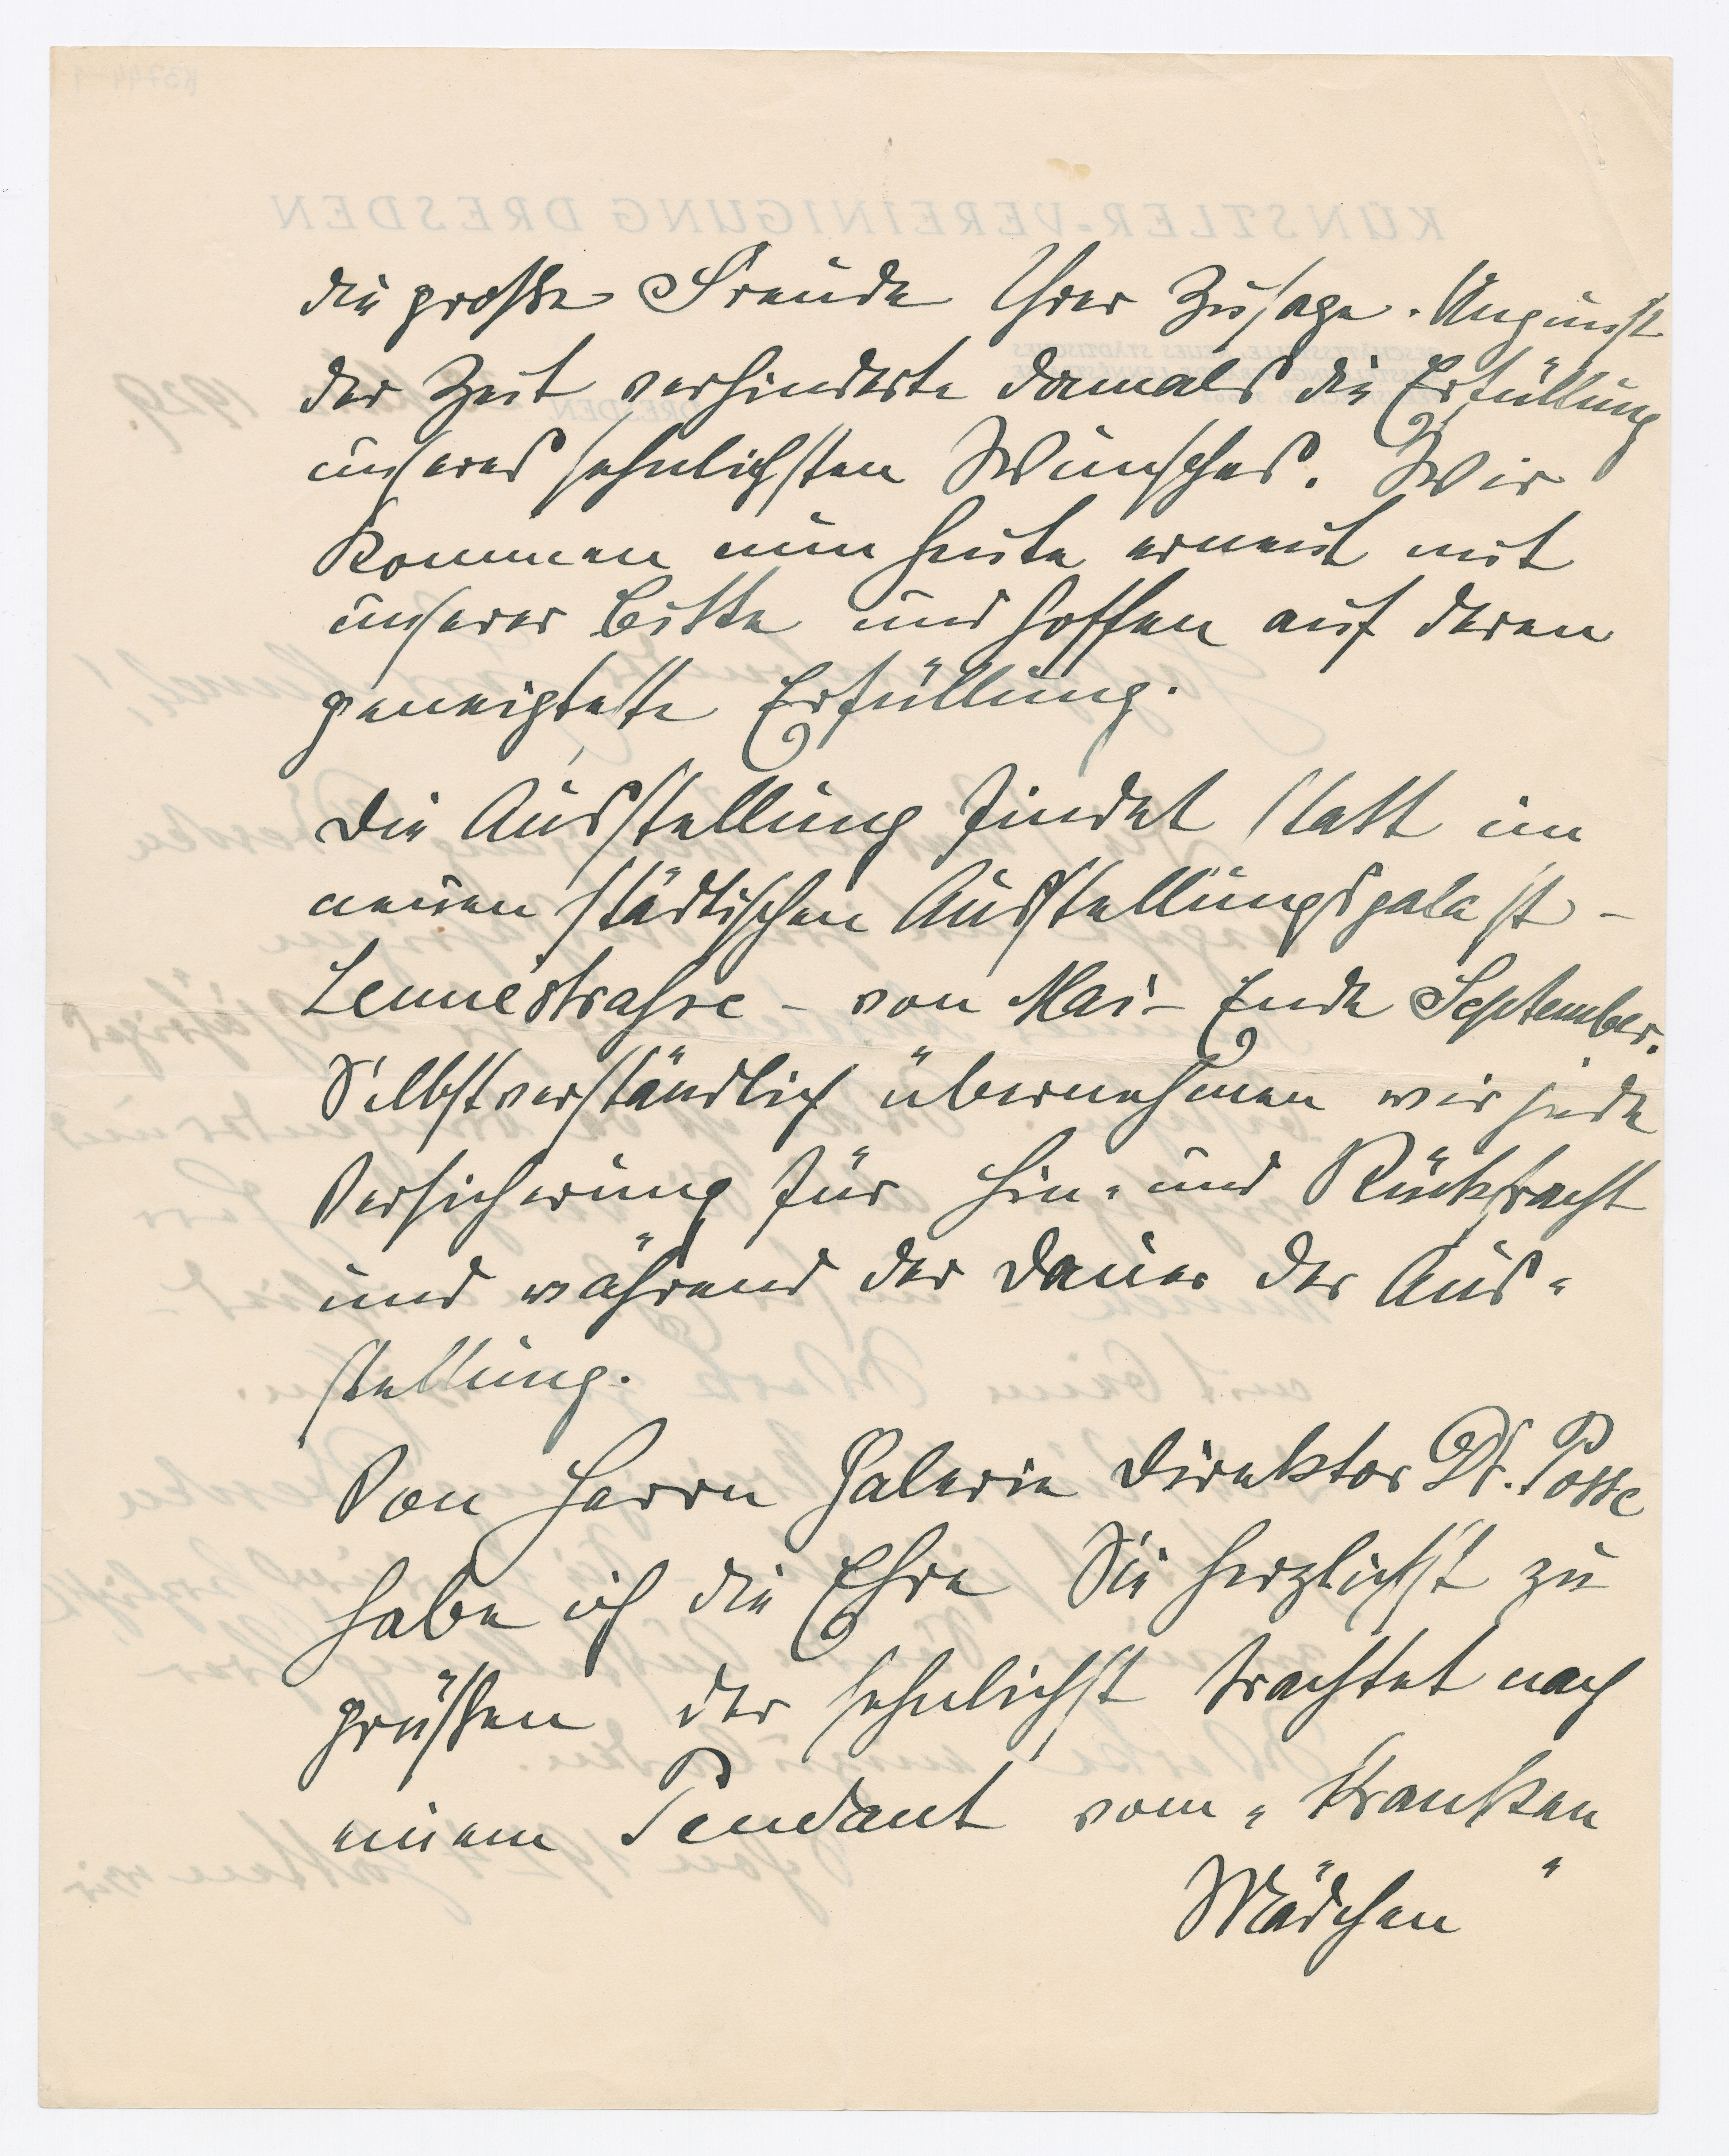 die große Freude Ihrer Zusage. Ungunst
der Zeit verhinderte damals die Erfüllung
unseres sehnlichsten Wunsches. Wir
kommen nun heute erneut mit
unserer Bitte und hoffen auf deren
geneigteste Erfüllung.
Die Ausstellung findet statt im
neuen städtischen Ausstellungspalast –
Lennéstrasse – von Mai – Ende September.
Selbstverständlich übernehmen wir jede
Versicherung für Hin- und Rückfracht
und während der Dauer der Aus-
stellung.
Von Herrn Galerie Direktor Dr. Posse
habe ich die Ehre Sie herzlichst zu
grüßen der sehnlichst trachtet nach
einem Pendant vom „Kranken
Mädchen"